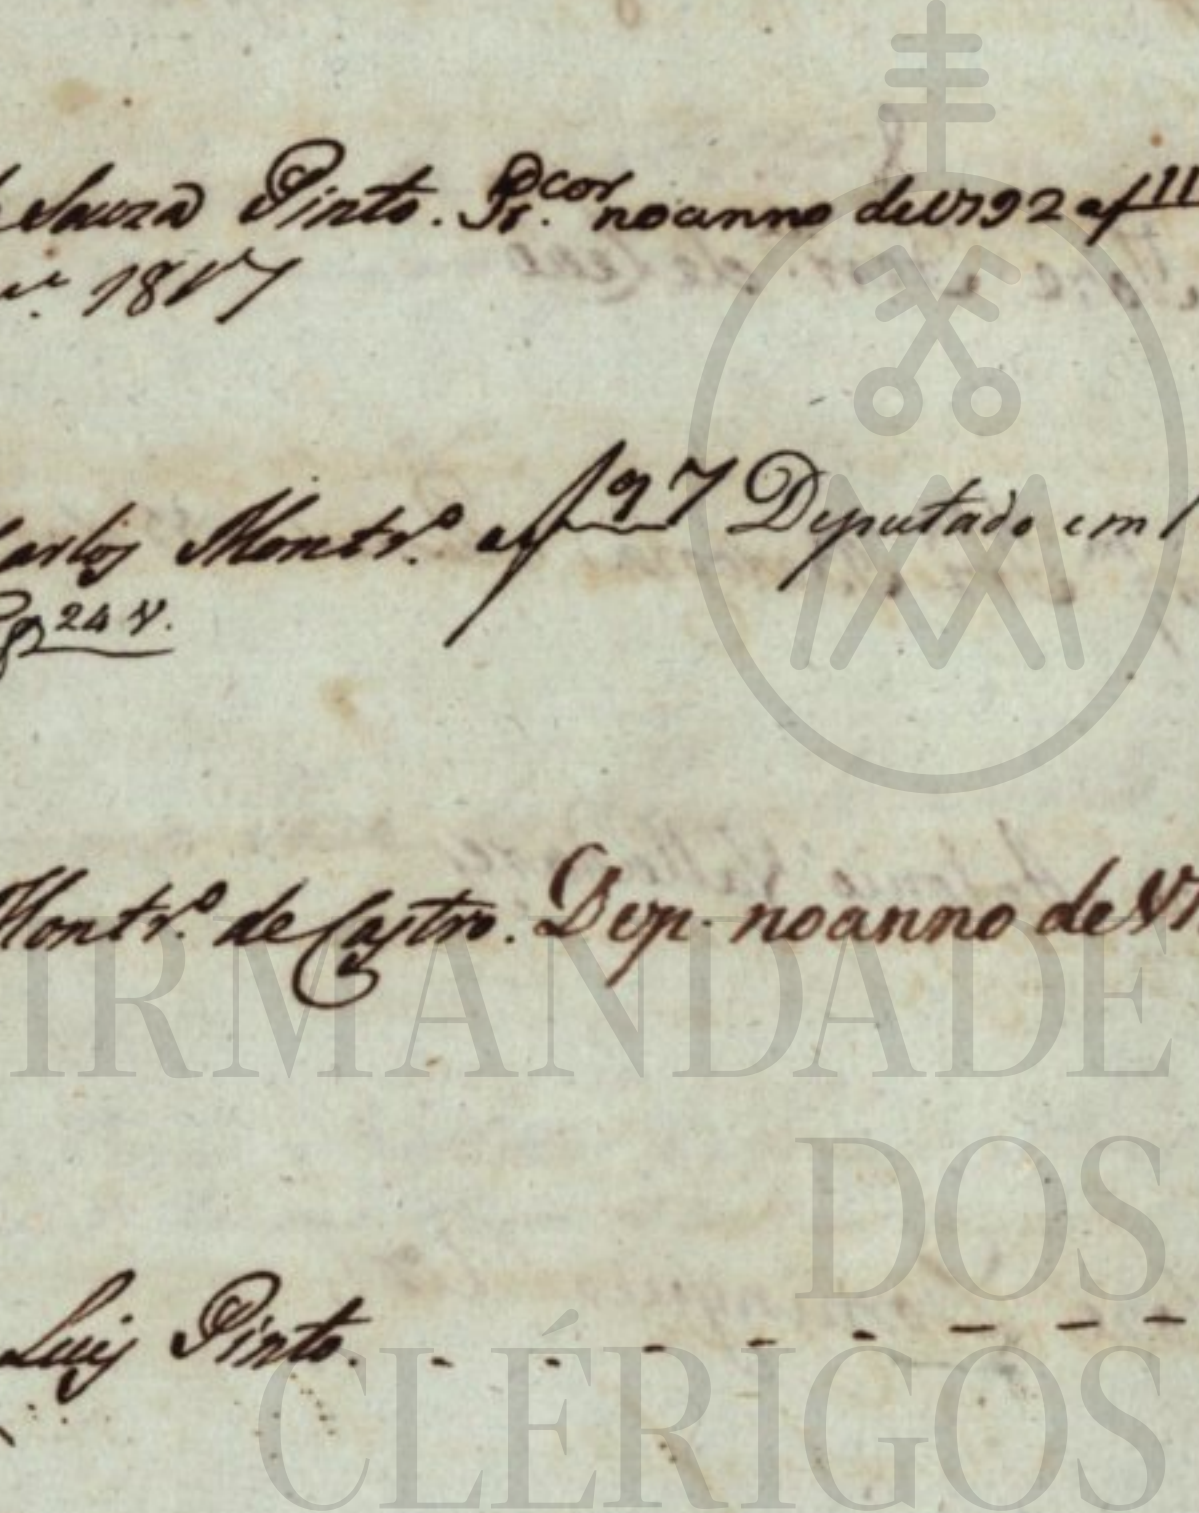 de Souza Pinto. Pr.cor no anno de 1792 a f 11
1817
Carlos Montr.º a f 97 Deputado em 1
24 v.
Montr.º de Castro. Dep. no anno de 17
Luis Pinto. - - - - - - - -
IRMANDADE
DOS
CLÉRIGOS